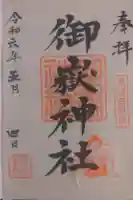 奉拝
御嶽神社
令和六年五月四日